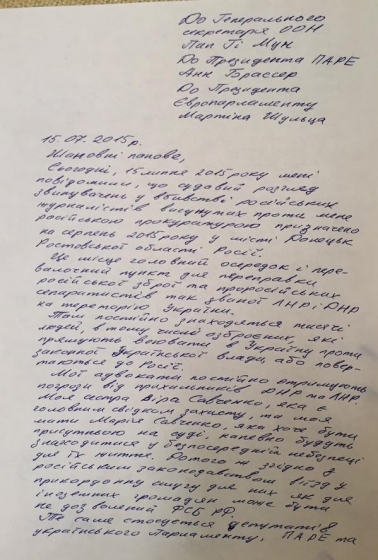 До Генерального
секретаря ООН
Пан Гі Мун
До Президента ПАРЕ
Анн Брассер
До Президента
Європарламенту
Мартіна Шульца
15.07.2015р.
Шановні панове,
Сьогодні, 15 липня 2015 року мені
повідомили, що судовий розгляд
звинувачень у вбивстві російських
журналістів висунутих проти мене
російською прокуратурою призначено
на серпень 2015 року у місті Донецьк
Ростовської області Росії.
Це місце головний осередок і пере-
валочний пункт для переправки
російської зброї та проросійських
сепаратистів так званої ЛНР і ДНР
на територію України.
Там постійно знаходяться тисячі
людей, в тому числі озброєних, які
прямують воювати в Україну проти
законної Української влади, або повер-
таються до Росії.
Мої адвокати постійно отримують
погрози від прихильників ДНР та ЛНР.
Моя сестра Віра Савченко, яка є
головним свідком захисту, та моя
мати Марія Савченко, яка хоче бути
присутньою на суді, напевно будуть
знаходитися у безпосередній небезпеці
для їх життя. Потого ж згідно з
російським законодавством в'їзд у
прикордонну смугу для них як для
іноземних громадян може бути
не дозволений ФСБ РФ.
Те саме стосується депутатів
українського Парламенту, ПАРЕ та